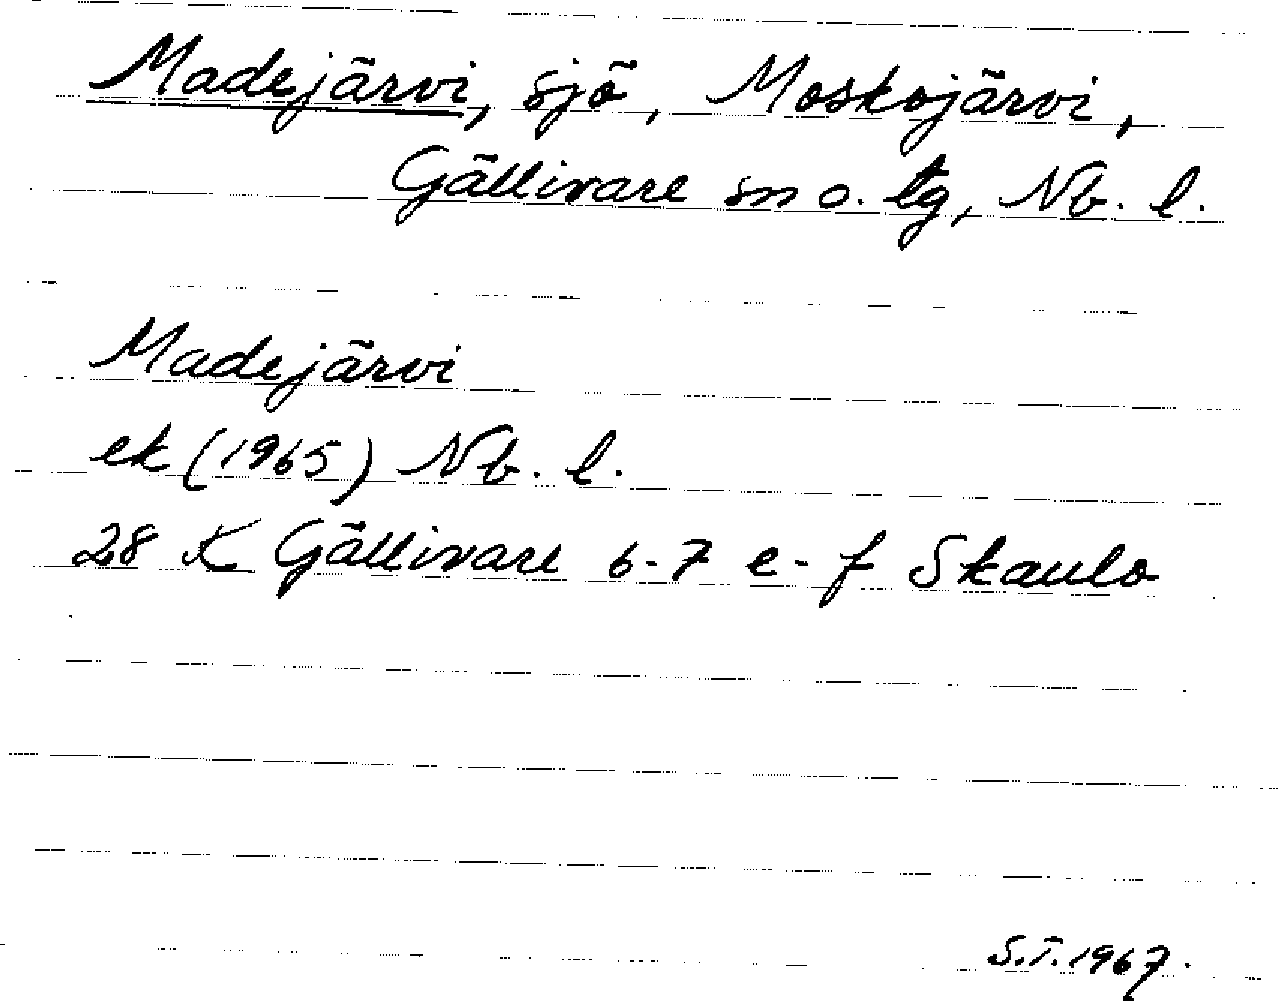 Madejärvi, sjö, Moskojärvi,
Gällivare sn o. tg, Nb. l.
Madejärvi
ek (1965) Nb. l.
28 K Gällivare 6-7 e-f Skaulo
S.T. 1967.